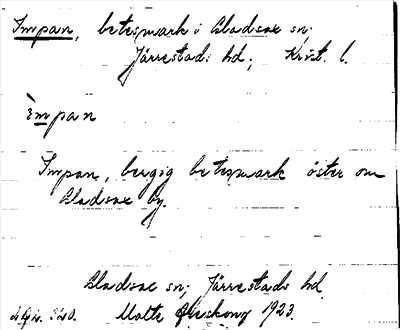 Impan, betesmark i Gladsax sn;
Järrestads hd; Krist. l.
ìmpan
Impan, bergig betesmark öster om
Gladsax by.
Gladsax sn; Järrestads hd
Malte 1923.